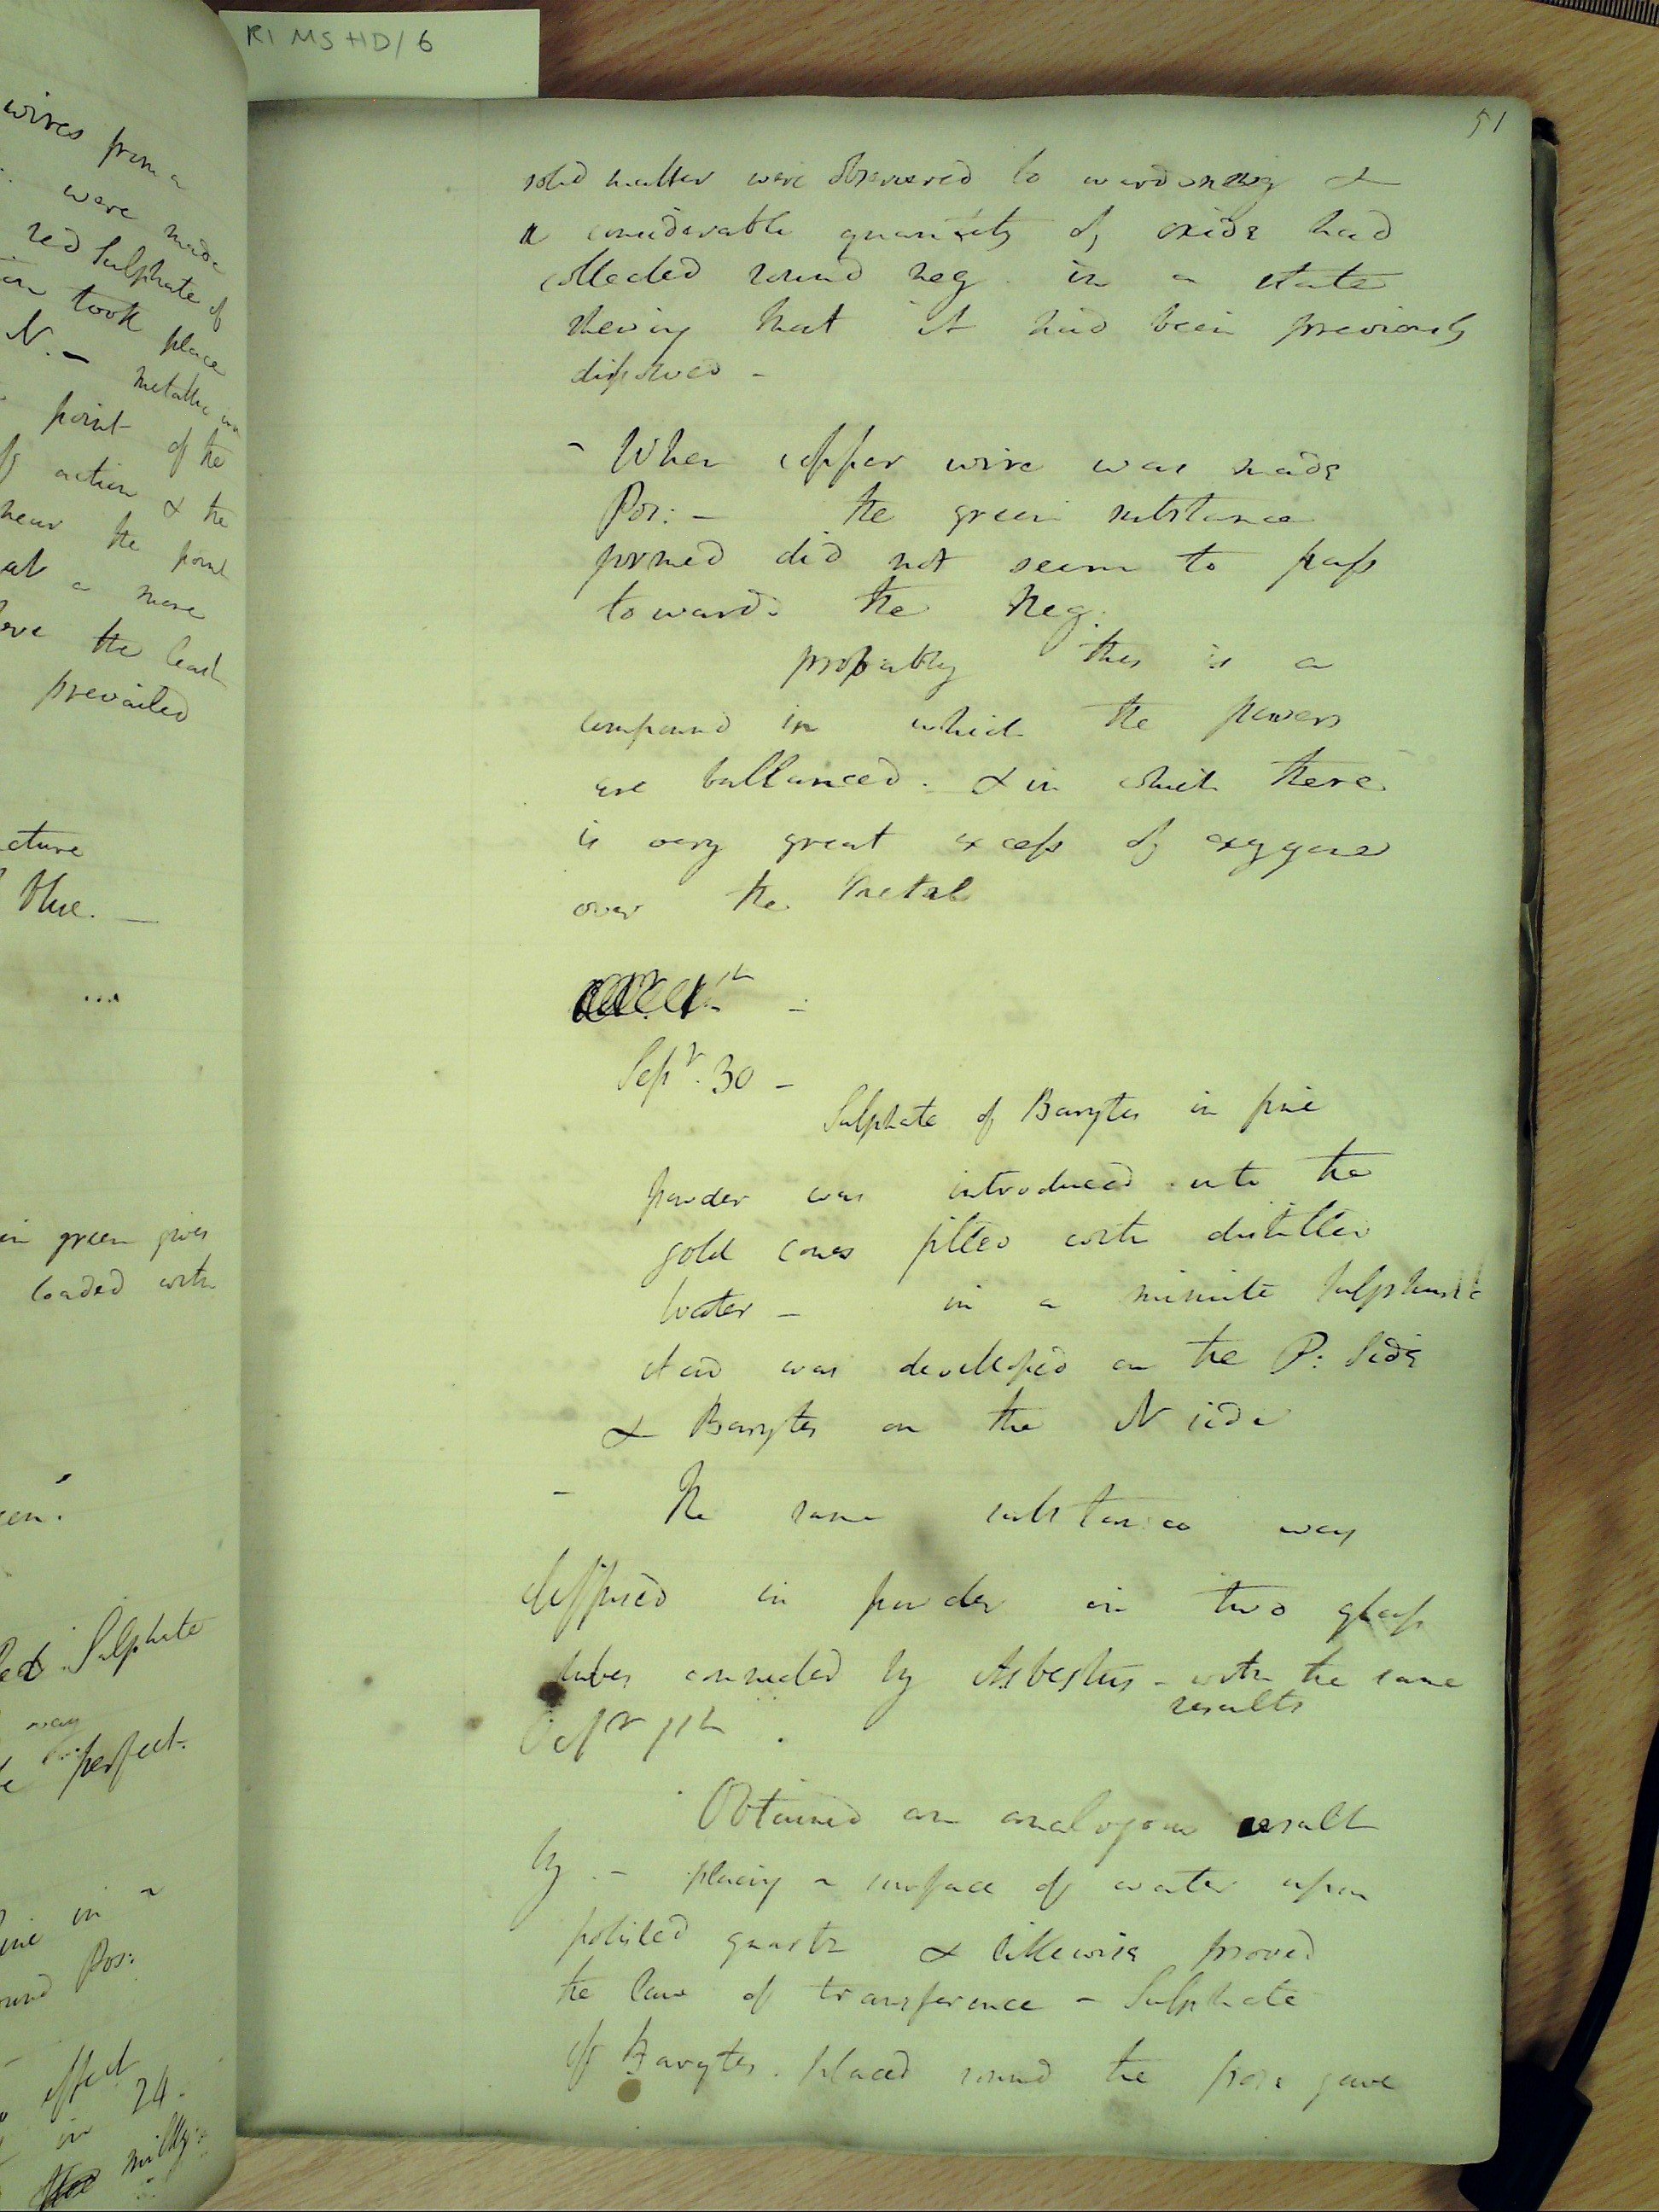 RI MS HD/6
wires from a
were made
red Sulphate of
took place
N. - metallic
point of the
action & the
near the point
at a more
the least
prevailed
blue. -
...
in green gives
loaded with
Sulphate
way
perfect.
in a
Pos:
effect
in 24.
milky:
51
solid matter were observered to &
a considerable quantity of oxide had
collected round neg. in a state
shewing that it had been previously
dissolved -
- When copper wire was made
Pos: - the green substance
formed did not seem to pass
towards the Neg.
probably this is a
compound in which the powers
are ballanced. & in which there
is very great excess of oxygene
over the metal
Sepr. 30 -
Sulphate of Barytes in fine
powder was introduced into the
gold cones filled with distilled
Water - in a minute Sulphuric
Acid was developed on the P: Side
& Barytes on the N side
- The same substance was
diffused in powder in two glass
tubes connected by Asbestus - with the same
results
11th .
Obtained an analogous result
by - placing a surface of water upon
polished quartz & likewise proved
the law of transference - Sulphate
of Barytes. placed round the gave